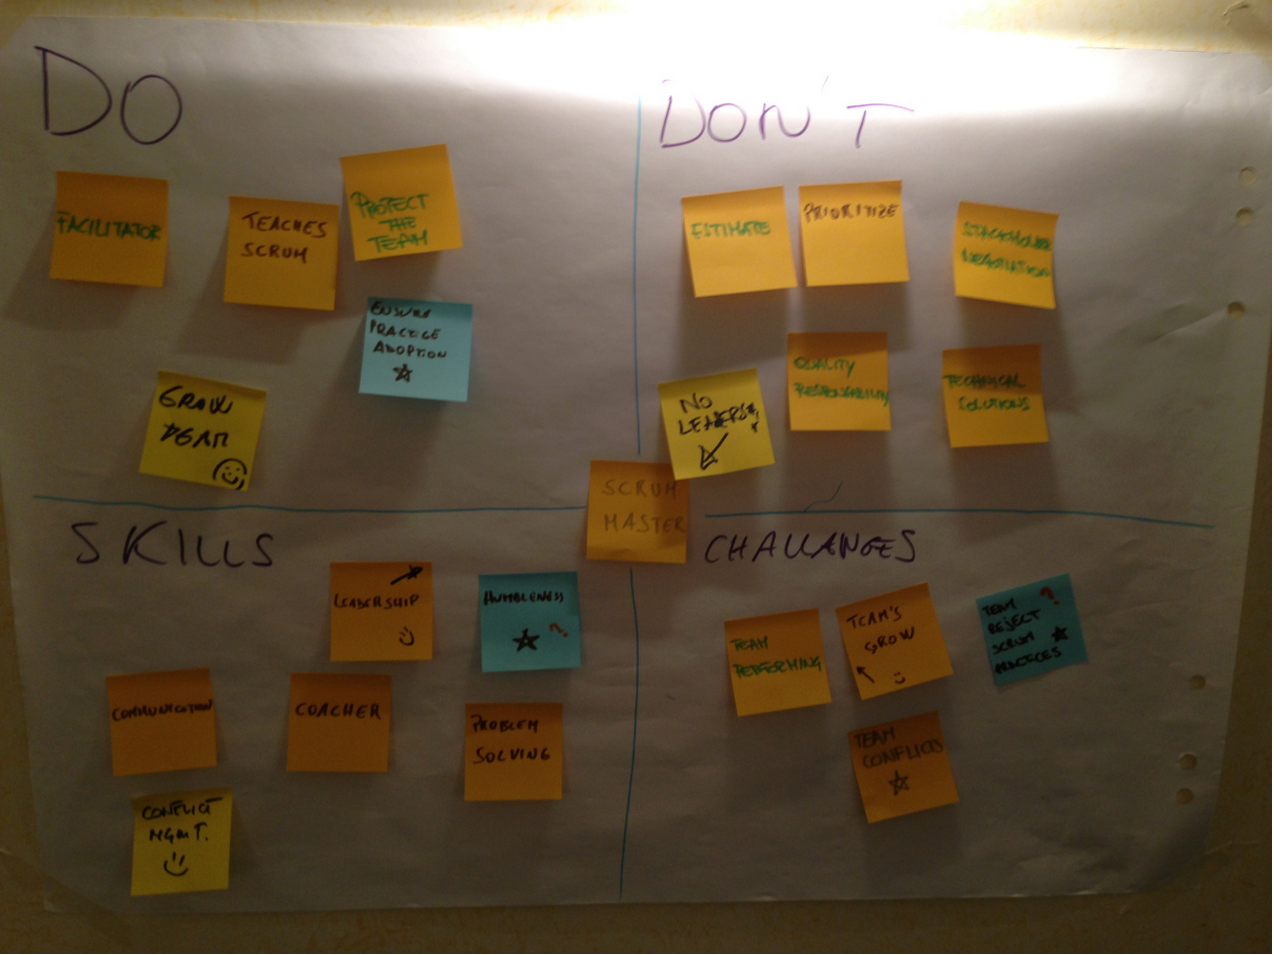 DO
FACILITATOR
TEACHES
SCRUM
PROTECT
THE
TEAM
ENSURE
PRACTICE
ADOPTION
GROW
TEAM
DON'T
ESTIMATE
PRIORITIZE
NEGOTIATION
NO
QUALITY
RESPONSABILITY
TECHNICAL
SOLUTIONS
SCRUM
MASTER
SKILLS
LEADERSHIP
HUMBLENESS
?
COMMUNICATION
COACHER
PROBLEM
SOLVING
CONFLICT
MGMT.
CHALLANGES
TEAM
PERFORMING
TEAM'S
GROW
TEAM ?
REJECT
SCRUM
PRACTICES
TEAM
CONFLICTS